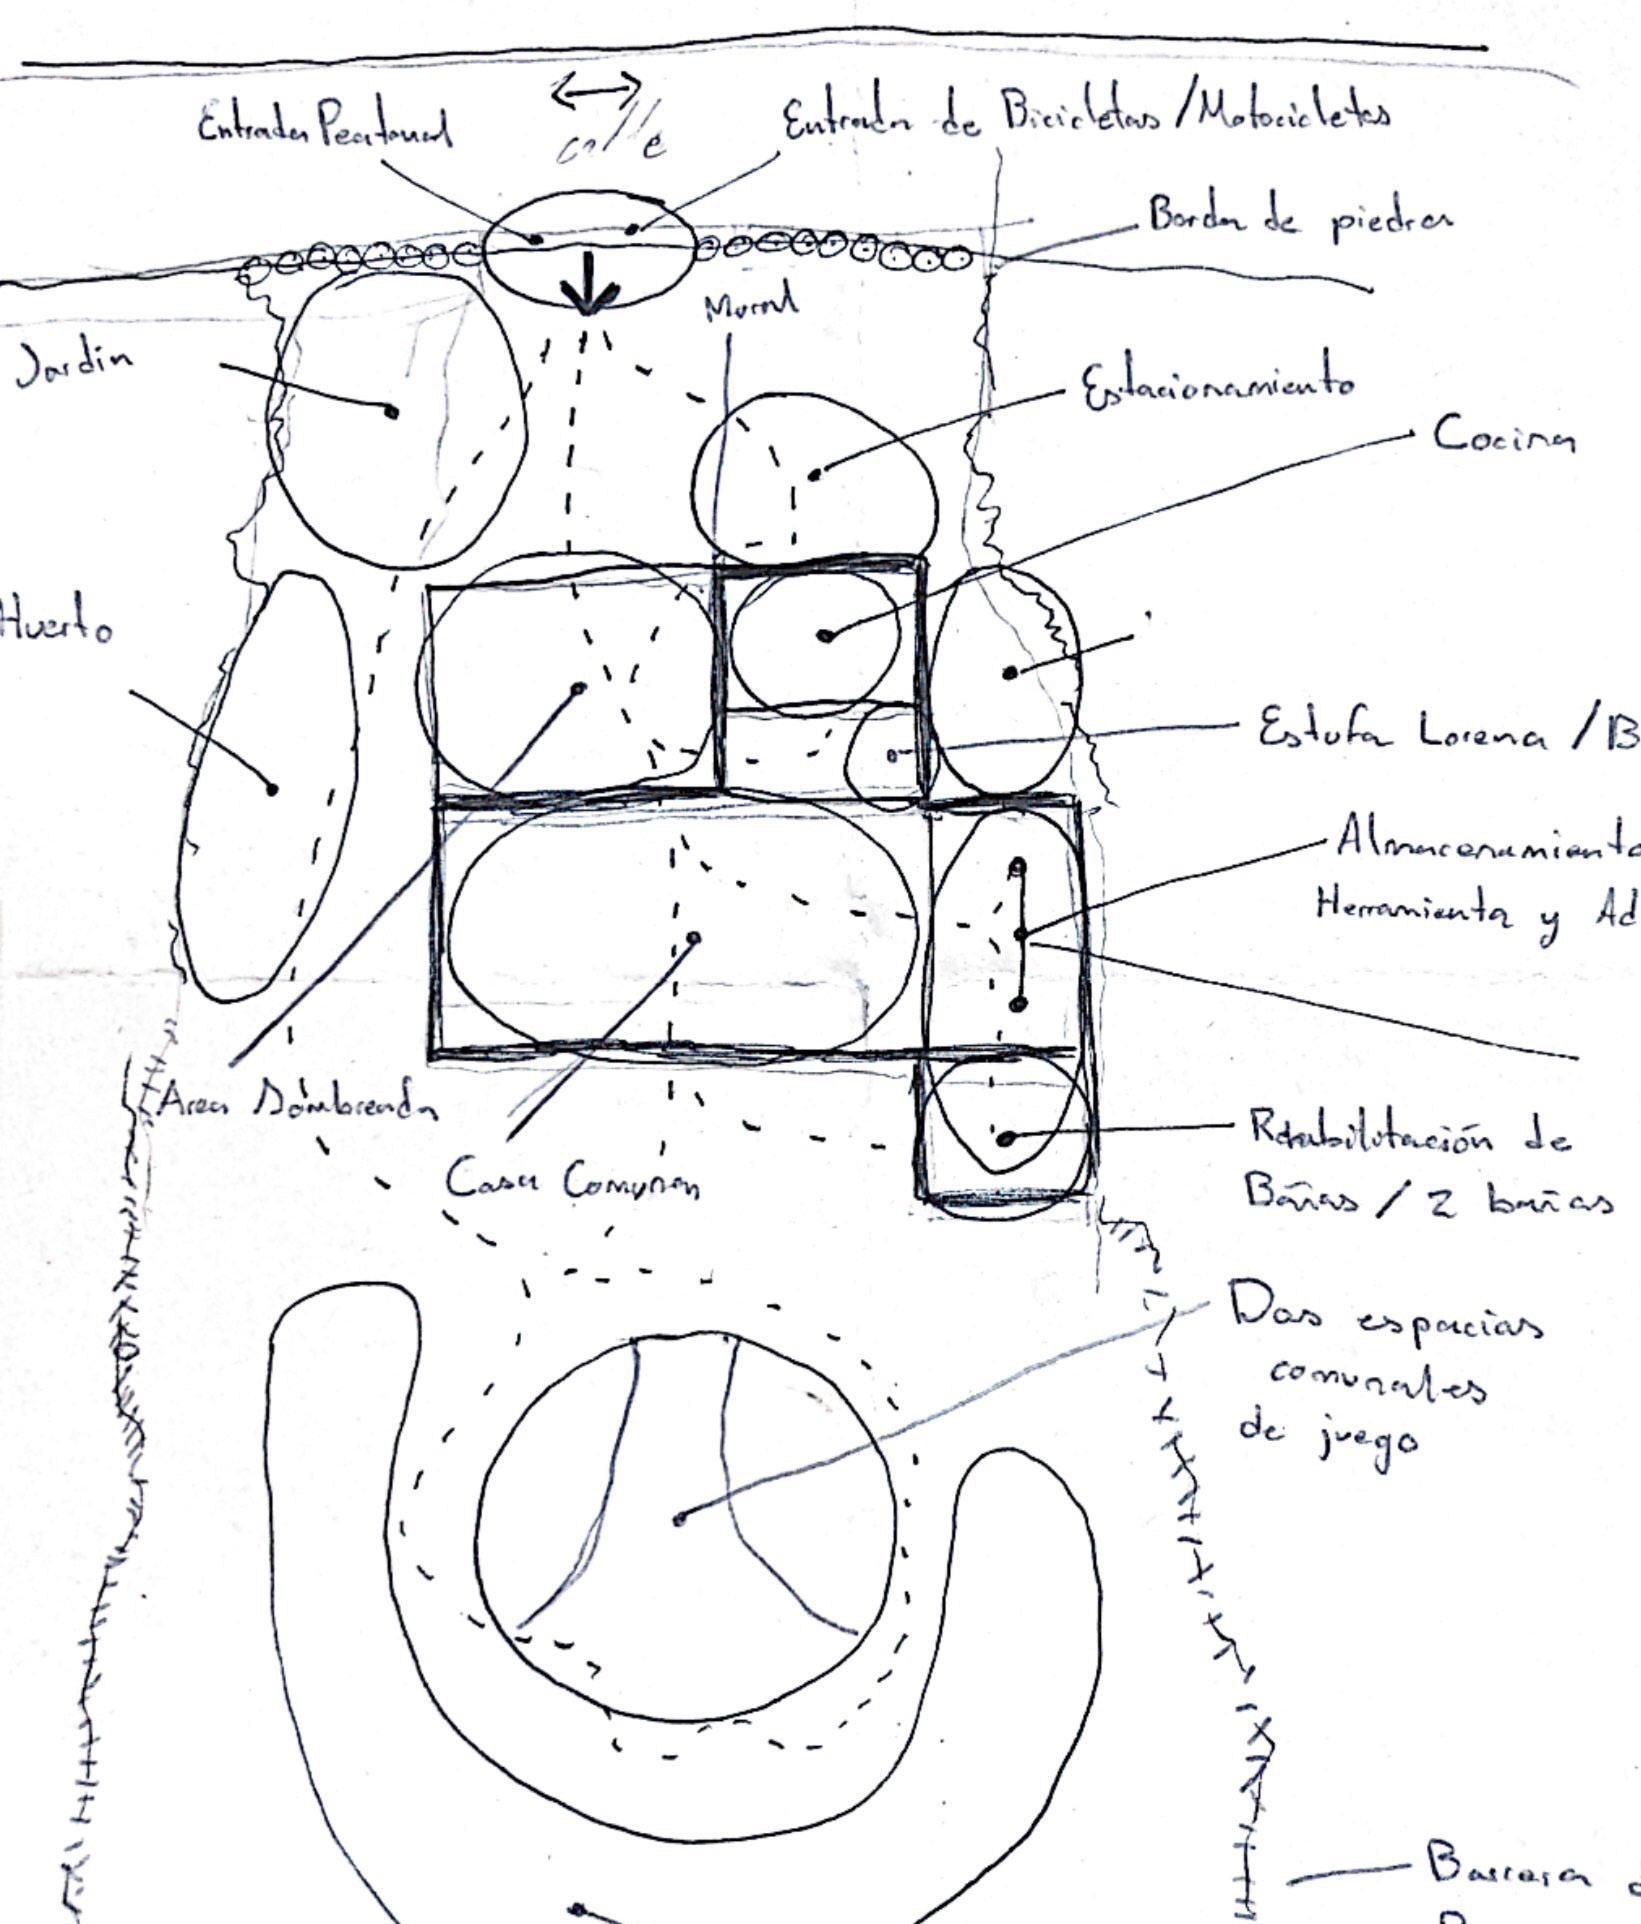 calle
Entrada Peatonal
Entrada de Bicicletas / Motocicletas
Borda de piedra
Mural
Jardin
Estacionamiento
Cocina
Huerto
Estufa Lorena / B
Almacenamiento
Herramienta y Ad
Area Sombreada
Casa Comunal
Rehabilitación de
Baños / 2 baños
Dos espacios
comunales
de juego